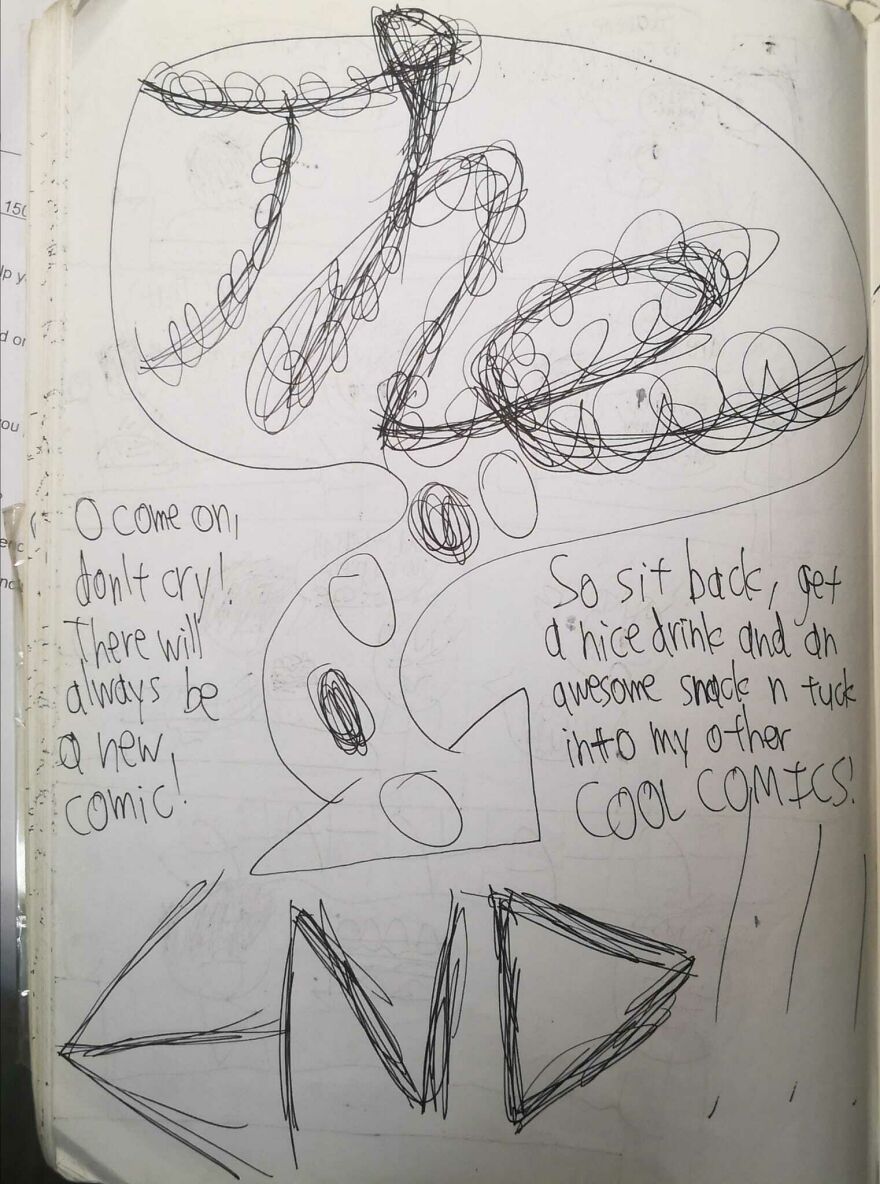 The
O come on,
don't cry!
There will
always be
a new
comic!
So sit back, get
a nice drink and an
awesome snack n tuck
into my other
COOL COMICS!
END!!!
150